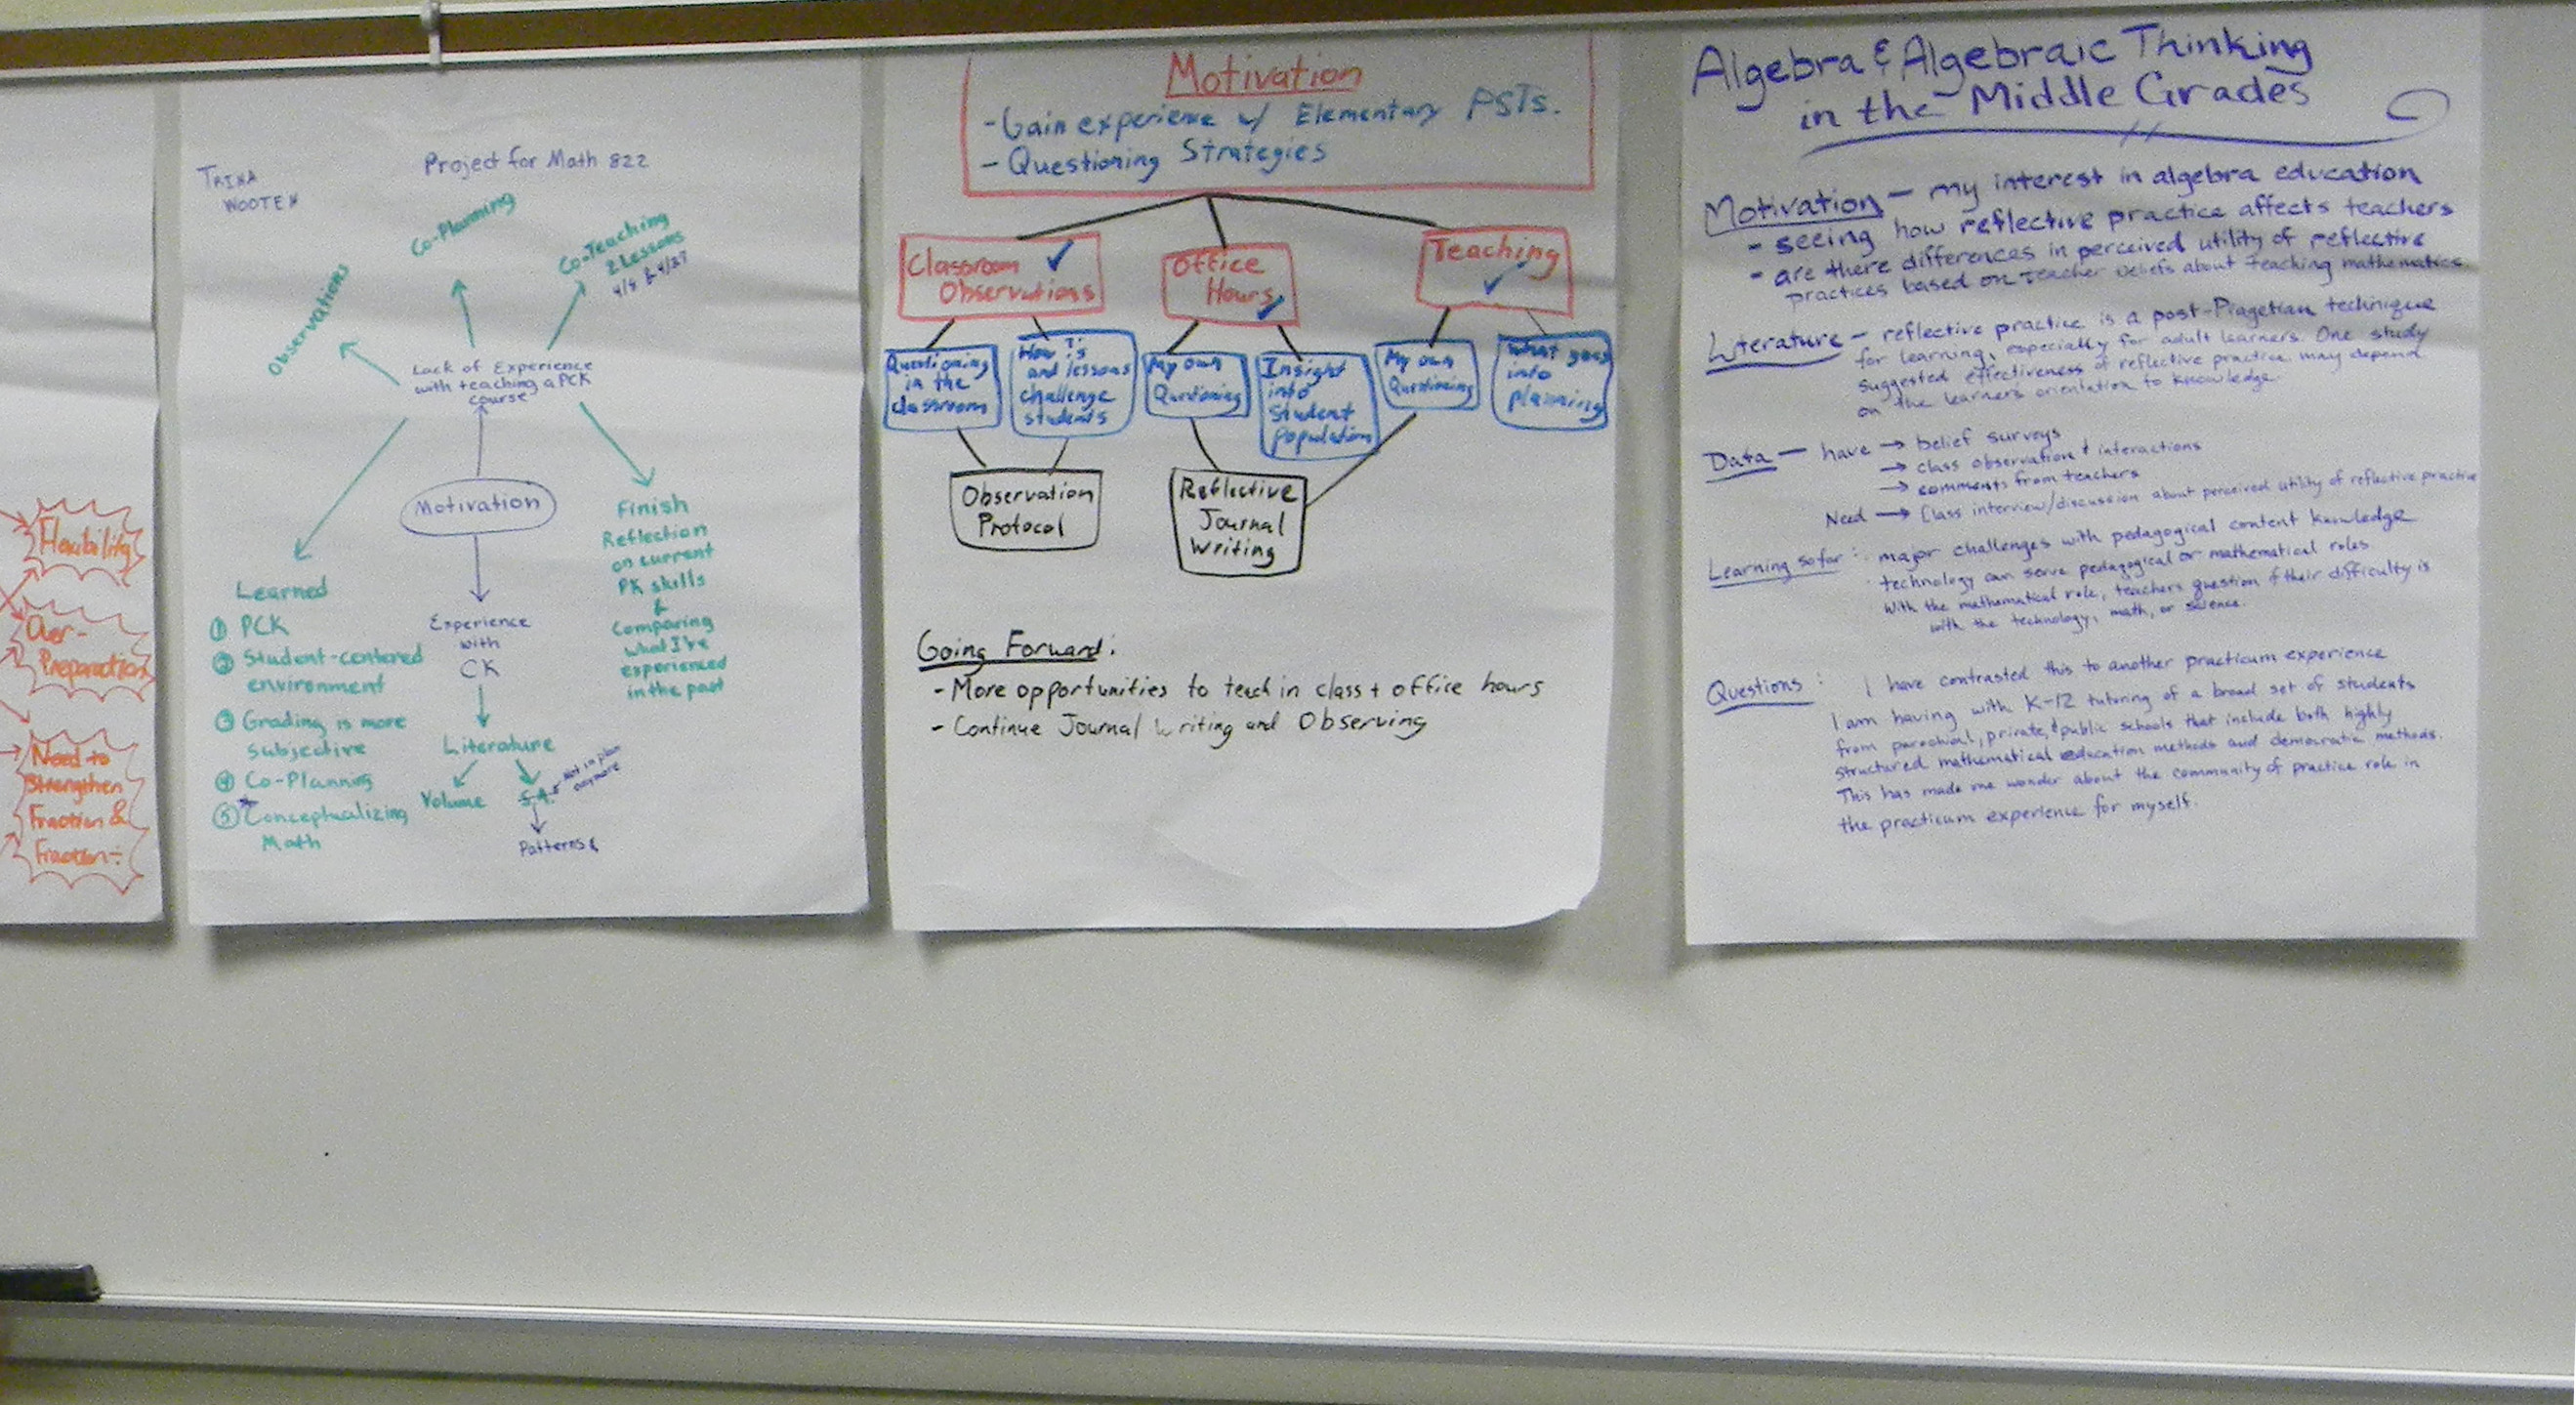 Flexibility
Over-
Preparation
Need to
Strengthen
Fraction &
Fraction ÷
TRINA
WOOTEN
Project for Math 822
Observations
Co-Planning
Co-Teaching
2 Lessons
Lack of Experience
with teaching a PCK
course
Motivation
Experience
with
CK
Literature
Volume
S.A.
Not in plan
anymore
Patterns &
Learned
① PCK
② Student-centered
environment
③ Grading is more
subjective
④ Co-Planning
⑤ Conceptualizing
Math
Finish
Reflection
on current
PK skills
&
Comparing
what I've
experienced
in the past
Motivation
- Gain experience w/ Elementary PSTs.
- Questioning Strategies
Classroom ✓
Observations
Office
Hours ✓
Teaching
✓
Questioning
in the
classroom
How T's
and lessons
challenge
students
My own
Questioning
Insight
into
Student
population
My own
Questioning
What goes
into
planning
Observation
Protocol
Reflective
Journal
Writing
Going Forward:
- More opportunities to teach in class + office hours
- Continue Journal Writing and Observing
Algebra & Algebraic Thinking
in the Middle Grades
Motivation - my interest in algebra education
- seeing how reflective practice affects teachers
- are there differences in perceived utility of reflective
practices based on teacher beliefs about teaching mathematics
Literature - reflective practice is a post-Piagetian technique
for learning, especially for adult learners. One study
suggested effectiveness of reflective practice may depend
on the learners orientation to knowledge.
Data - have → belief surveys
→ class observation & interactions
→ comments from teachers
Need → Class interview/discussion about perceived utility of reflective practice
Learning so far: · major challenges with pedagogical content knowledge
· technology can serve pedagogical or mathematical roles
With the mathematical role, teachers question if their difficulty is
with the technology, math, or science.
Questions: I have contrasted this to another practicum experience
I am having with K-12 tutoring of a broad set of students
from parochial, private, & public schools that include both highly
structured mathematical education methods and democratic methods.
This has made me wonder about the community of practice role in
the practicum experience for myself.